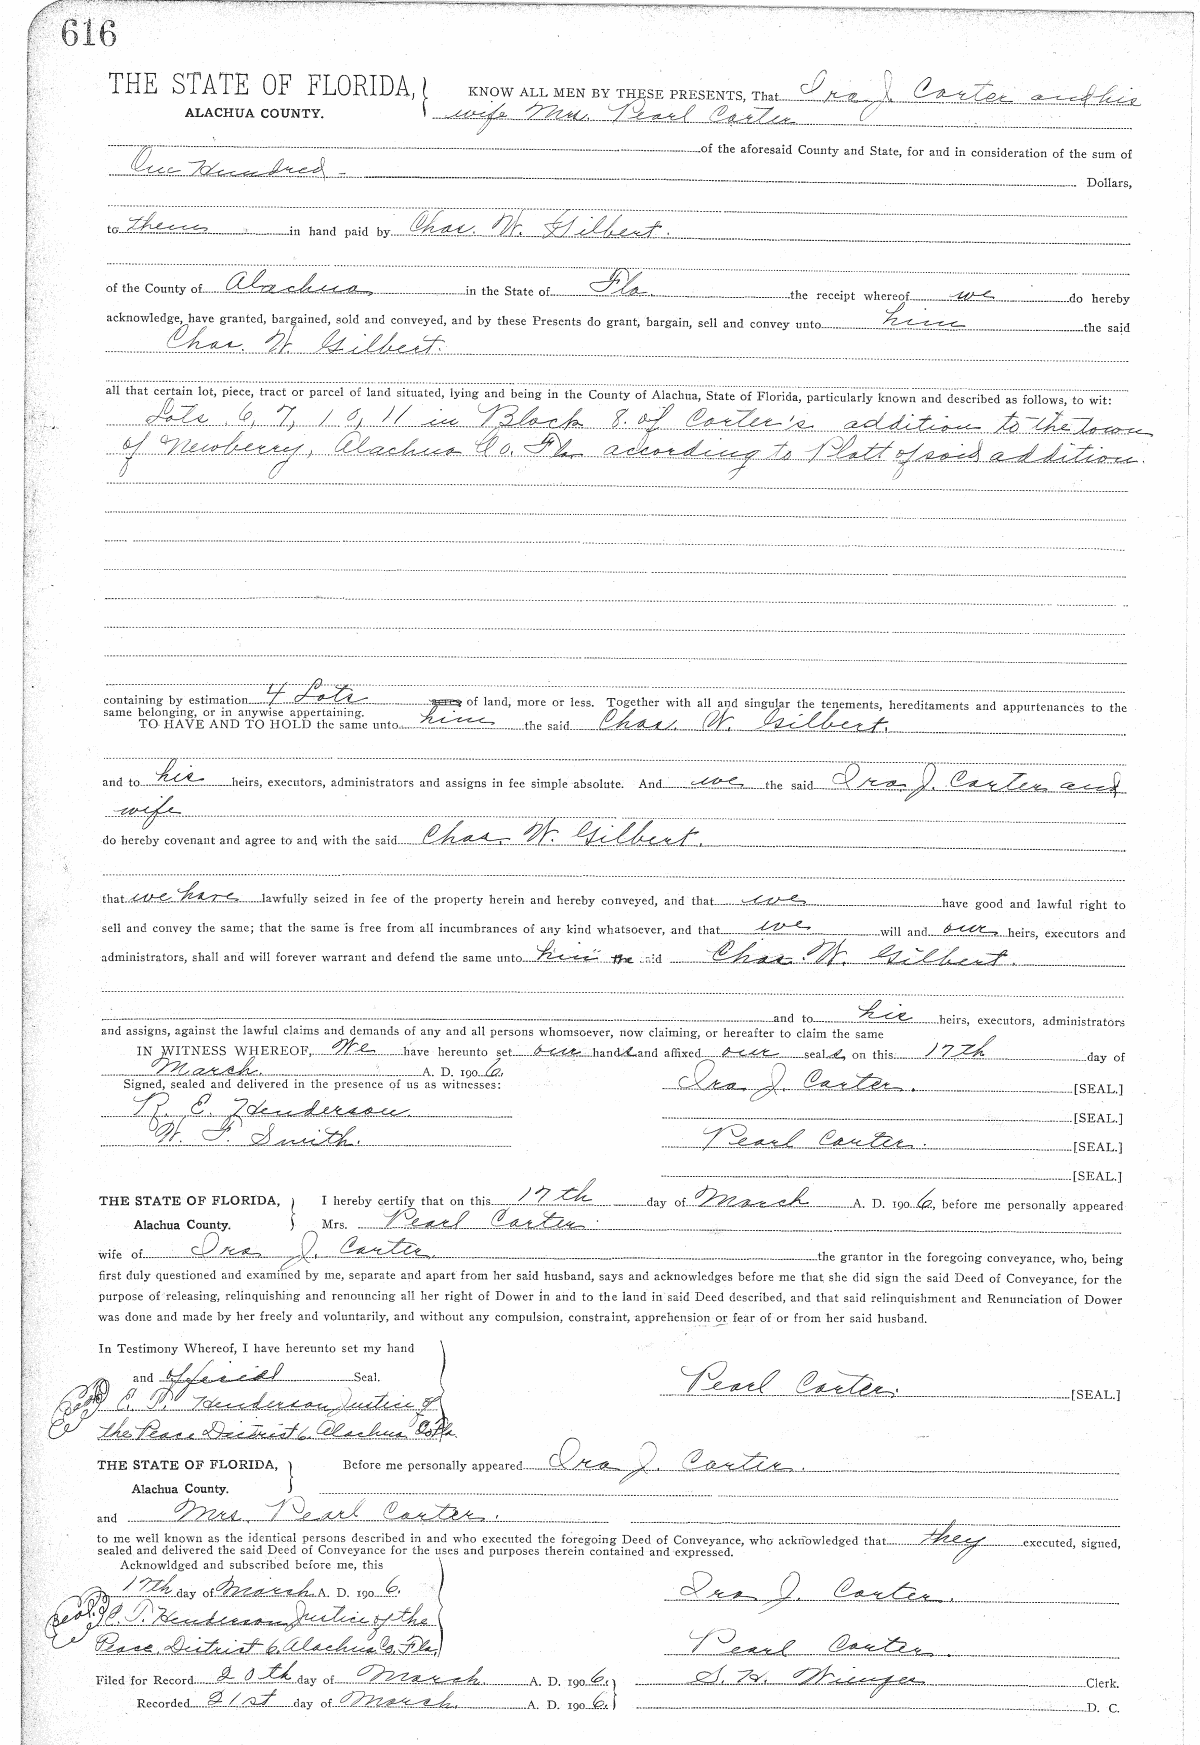 616
THE STATE OF FLORIDA, KNOW ALL MEN BY THESE PRESENTS, That Ira J. Carter and his
ALACHUA COUNTY. wife Mrs. Pearl Carter
of the aforesaid County and State, for and in consideration of the sum of
One Hundred - Dollars,
to them in hand paid by Chas. W. Gilbert.
of the County of Alachua in the State of Fla. the receipt whereof we do hereby
acknowledge, have granted, bargained, sold and conveyed, and by these Presents do grant, bargain, sell and convey unto him the said
Chas. W. Gilbert.
all that certain lot, piece, tract or parcel of land situated, lying and being in the County of Alachua, State of Florida, particularly known and described as follows, to wit:
Lots 6, 7, 10, 11 in Block 8. of Carter's addition to the town
of Newberry, Alachua Co. Fla according to Platt of said addition.
containing by estimation 4 Lots acres of land, more or less. Together with all and singular the tenements, hereditaments and appurtenances to the
same belonging, or in anywise appertaining.
TO HAVE AND TO HOLD the same unto him the said Chas. W. Gilbert.
and to his heirs, executors, administrators and assigns in fee simple absolute. And we the said Ira J. Carter and
wife
do hereby covenant and agree to and with the said Chas W. Gilbert.
that we have lawfully seized in fee of the property herein and hereby conveyed, and that we have good and lawful right to
sell and convey the same; that the same is free from all incumbrances of any kind whatsoever, and that we will and our heirs, executors and
administrators, shall and will forever warrant and defend the same unto him the said Chas. W. Gilbert.
and to his heirs, executors, administrators
and assigns, against the lawful claims and demands of any and all persons whomsoever, now claiming, or hereafter to claim the same
IN WITNESS WHEREOF, We have hereunto set our hands and affixed our seals on this 17th day of
March A. D. 1906.
Signed, sealed and delivered in the presence of us as witnesses: Ira J. Carter. [SEAL.]
R. E. Henderson [SEAL.]
W. F. Smith. Pearl Carter. [SEAL.]
[SEAL.]
THE STATE OF FLORIDA, I hereby certify that on this 17th day of March A. D. 1906, before me personally appeared
Alachua County. Mrs. Pearl Carter.
wife of Ira J. Carter. the grantor in the foregoing conveyance, who, being
first duly questioned and examined by me, separate and apart from her said husband, says and acknowledges before me that she did sign the said Deed of Conveyance, for the
purpose of releasing, relinquishing and renouncing all her right of Dower in and to the land in said Deed described, and that said relinquishment and Renunciation of Dower
was done and made by her freely and voluntarily, and without any compulsion, constraint, apprehension or fear of or from her said husband.
In Testimony Whereof, I have hereunto set my hand
and official Seal. Pearl Carter. [SEAL.]
Seal E. P. Henderson Justice of
the Peace District 6. Alachua Co Fla.
THE STATE OF FLORIDA, Before me personally appeared Ira J. Carter.
Alachua County.
and Mrs. Pearl Carter.
to me well known as the identical persons described in and who executed the foregoing Deed of Conveyance, who acknowledged that they executed, signed,
sealed and delivered the said Deed of Conveyance for the uses and purposes therein contained and expressed.
Acknowldged and subscribed before me, this
17th day of March A. D. 1906. Ira J. Carter.
Seal. Henderson Justice of the
Peace. District 6. Alachua Co. Fla. Pearl Carter.
Filed for Record 20th day of March A. D. 1906. S. H. Wienges Clerk.
Recorded 21st day of March A. D. 1906. D. C.